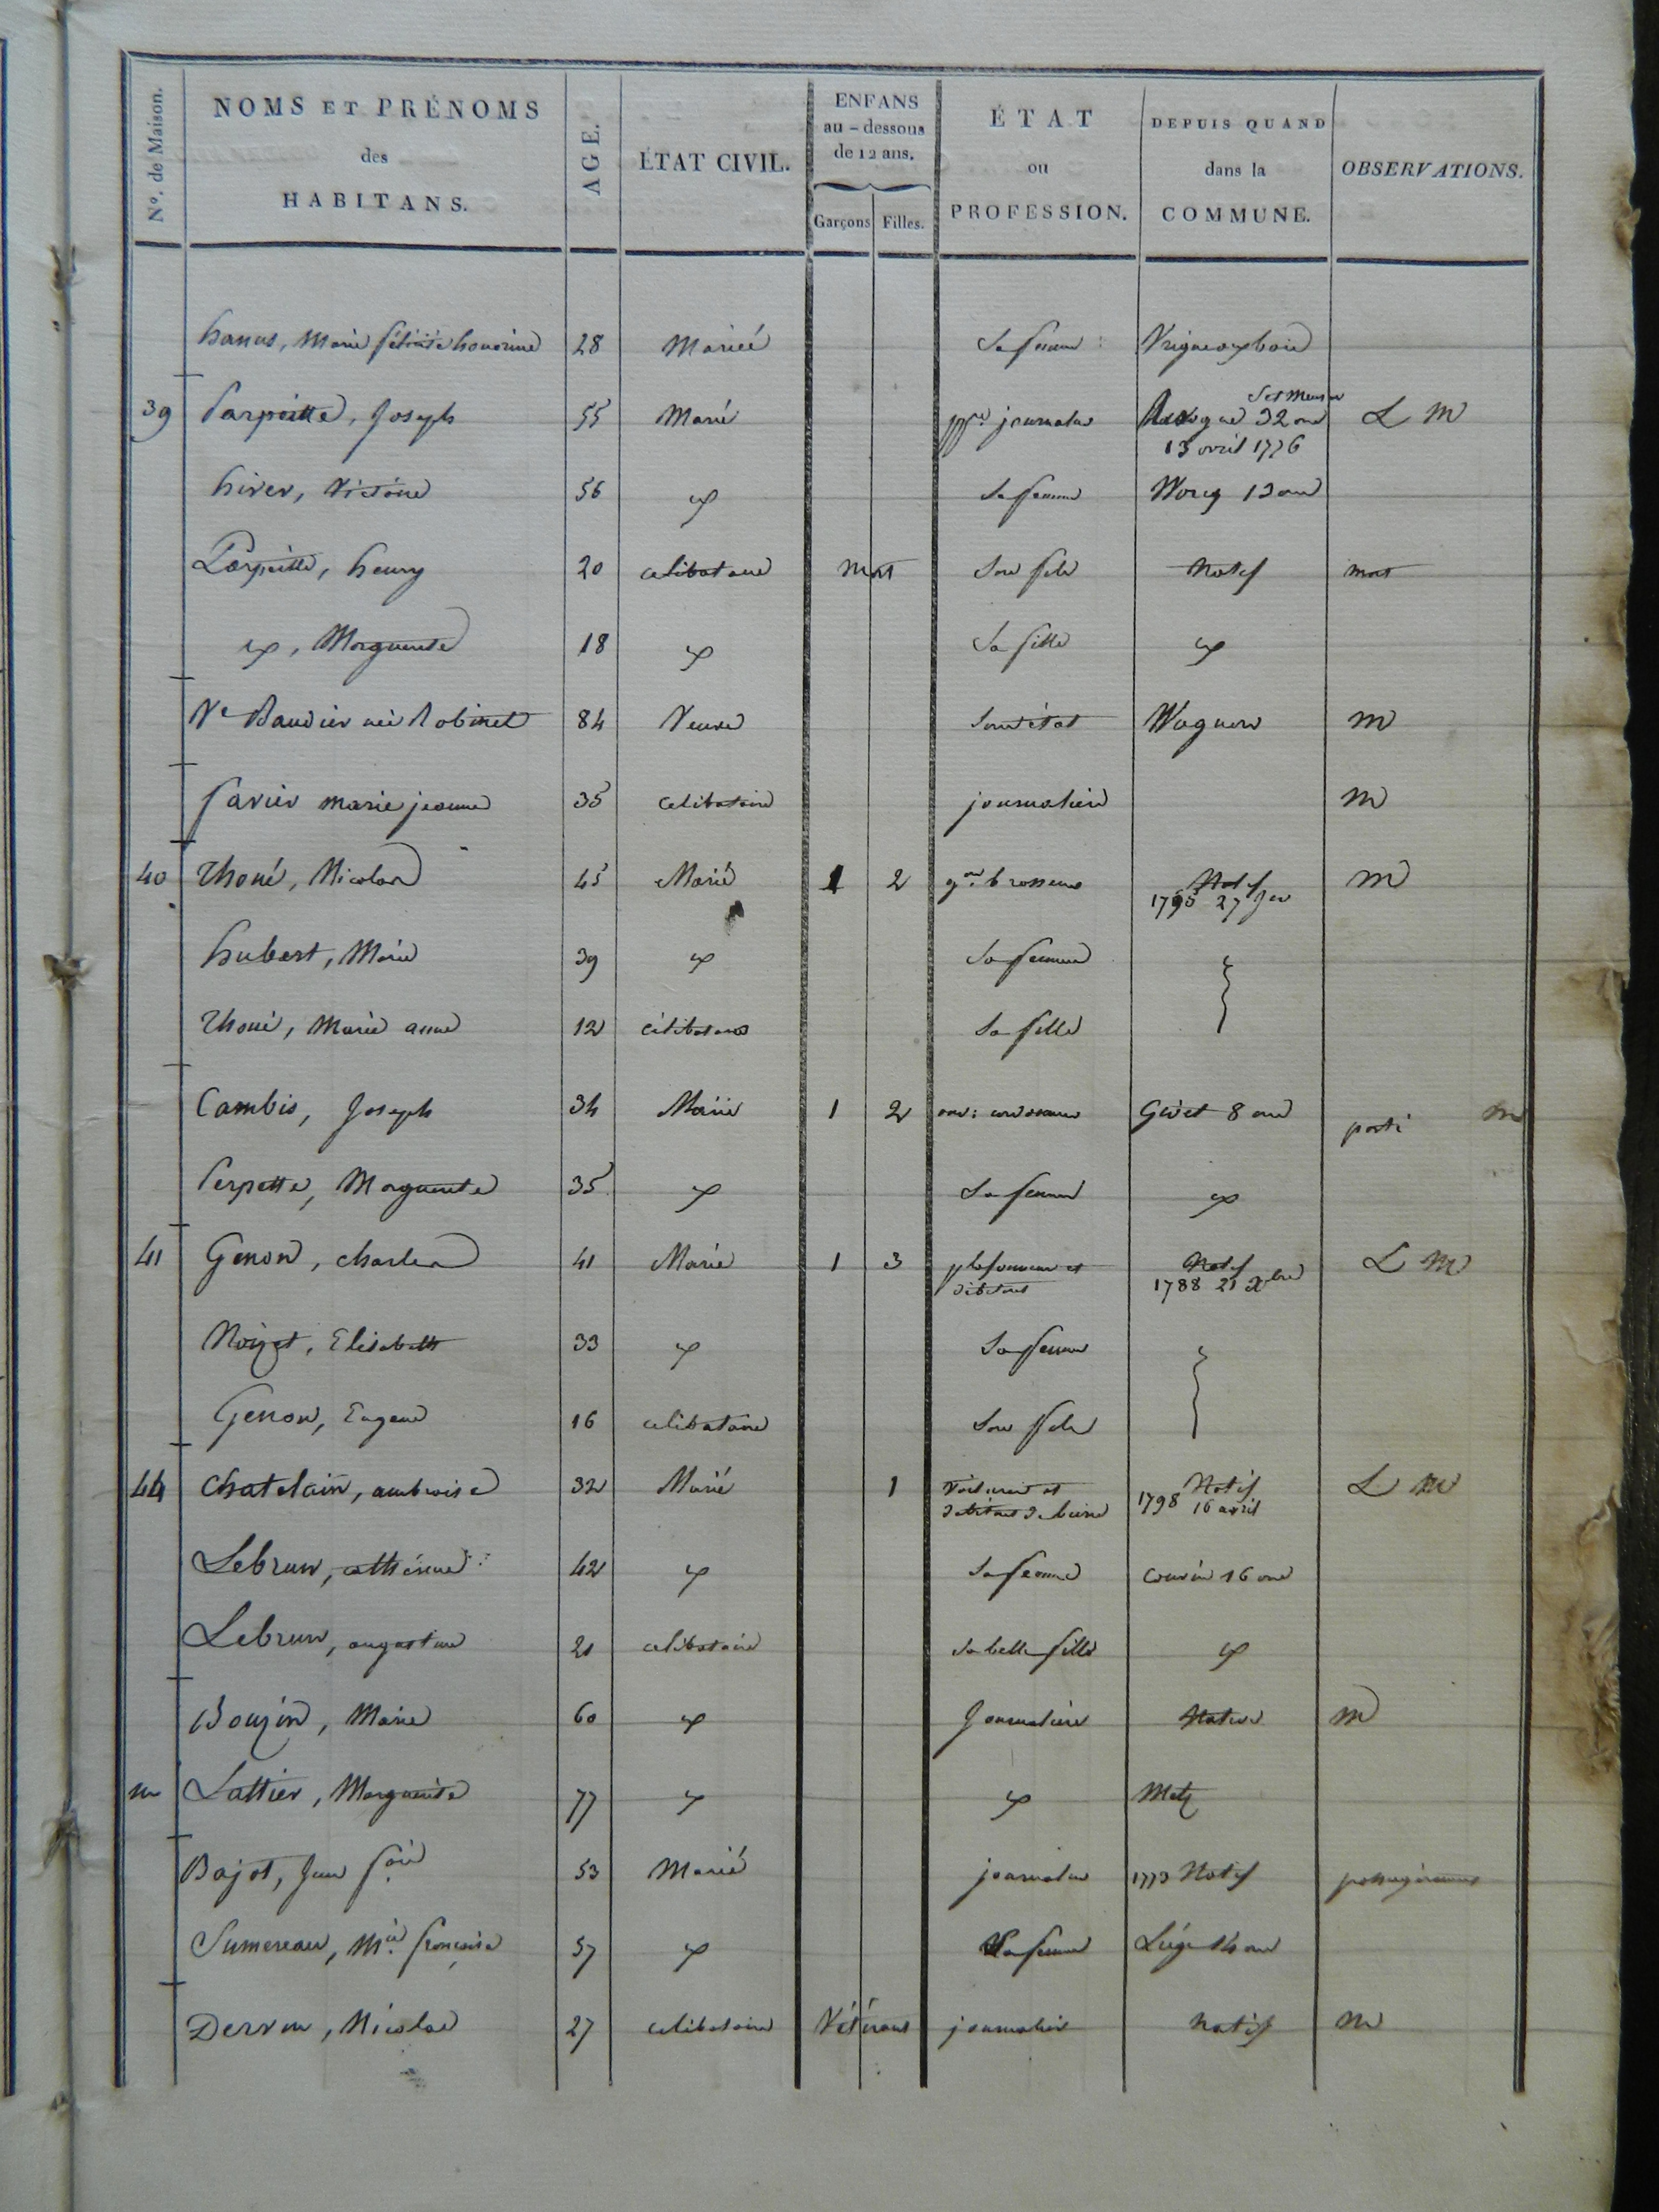 N°. de Maison.
NOMS ET PRÉNOMS
des
HABITANS.
AGE.
ÉTAT CIVIL.
ENFANS
au-dessous
de 12 ans.
Garçons Filles.
ÉTAT
ou
PROFESSION.
DEPUIS QUAND
dans la
COMMUNE.
OBSERVATIONS.
hanus, Marie félicité honorine 28 Mariée Sa femme Vrigneauxbois
39 Parpaitte, Joseph 55 Marié journalier 32 ans L M
13 avril 1776
hiver, Victoire 56 Sa femme 12 ans
Parpaitte, henry 20 celibataire mort Son fils Natif mort
Marguerite 18 Sa fille
Ve Baudier née Robinet 84 Veuve Sans état Wagnon M
Favier marie jeanne 35 celibataire journalière M
40 Thoué, Nicolas 45 Marié 1 2 Natif M
1795 27
hubert, Marie 39 Sa femme
Thoué, Marie anne 12 célibataire Sa fille
Cambis, Joseph 34 Marié 1 2 Givet 8 ans parti M
Perpette, Marguerite 35 Sa femme
41 Genon, charles 41 Marié 1 3 plafonneur et Natif L M
débitant 1788 21 Xbre
Noizet, Elisabeth 33 Sa femme
Genon, Eugene 16 celibataire Son fils
44 Chatelain, ambroise 32 Marié 1 Voiturier et Natif L M
débitant de bierre 1798 16 avril
Lebrun, catherine 42 Sa femme Couvin 16 ans
Lebrun, augustine 21 celibataire Sa belle fille
Bouzin, Marie 60 Journalière Native M
m Lattier, Marguerite 77 Metz
Bajot, Jean fois 53 Marié journalier 1773 Natif
Sumereau, Mie françoise 57 Sa femme Liége 14 ans
Dervin, Nicolas 27 celibataire Vétérans journalier natif M